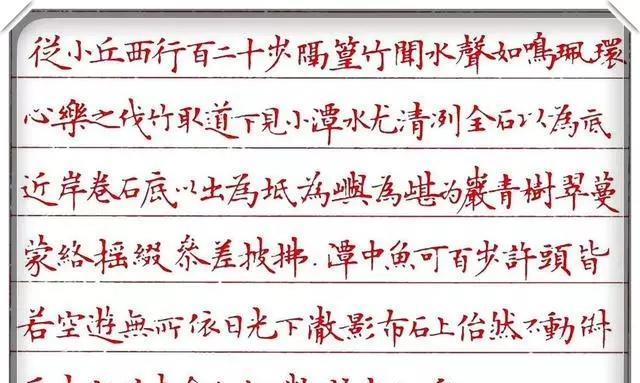 從小丘西行百二十步隔篁竹聞水聲如鳴珮環
心樂之伐竹取道下見小潭水尤清洌全石以為底
近岸卷石底以出為坻為嶼為嵁為巖青樹翠蔓
蒙絡摇綴參差披拂.潭中魚可百步許頭皆
若空遊無所依日光下澈影布石上佁然不動俶